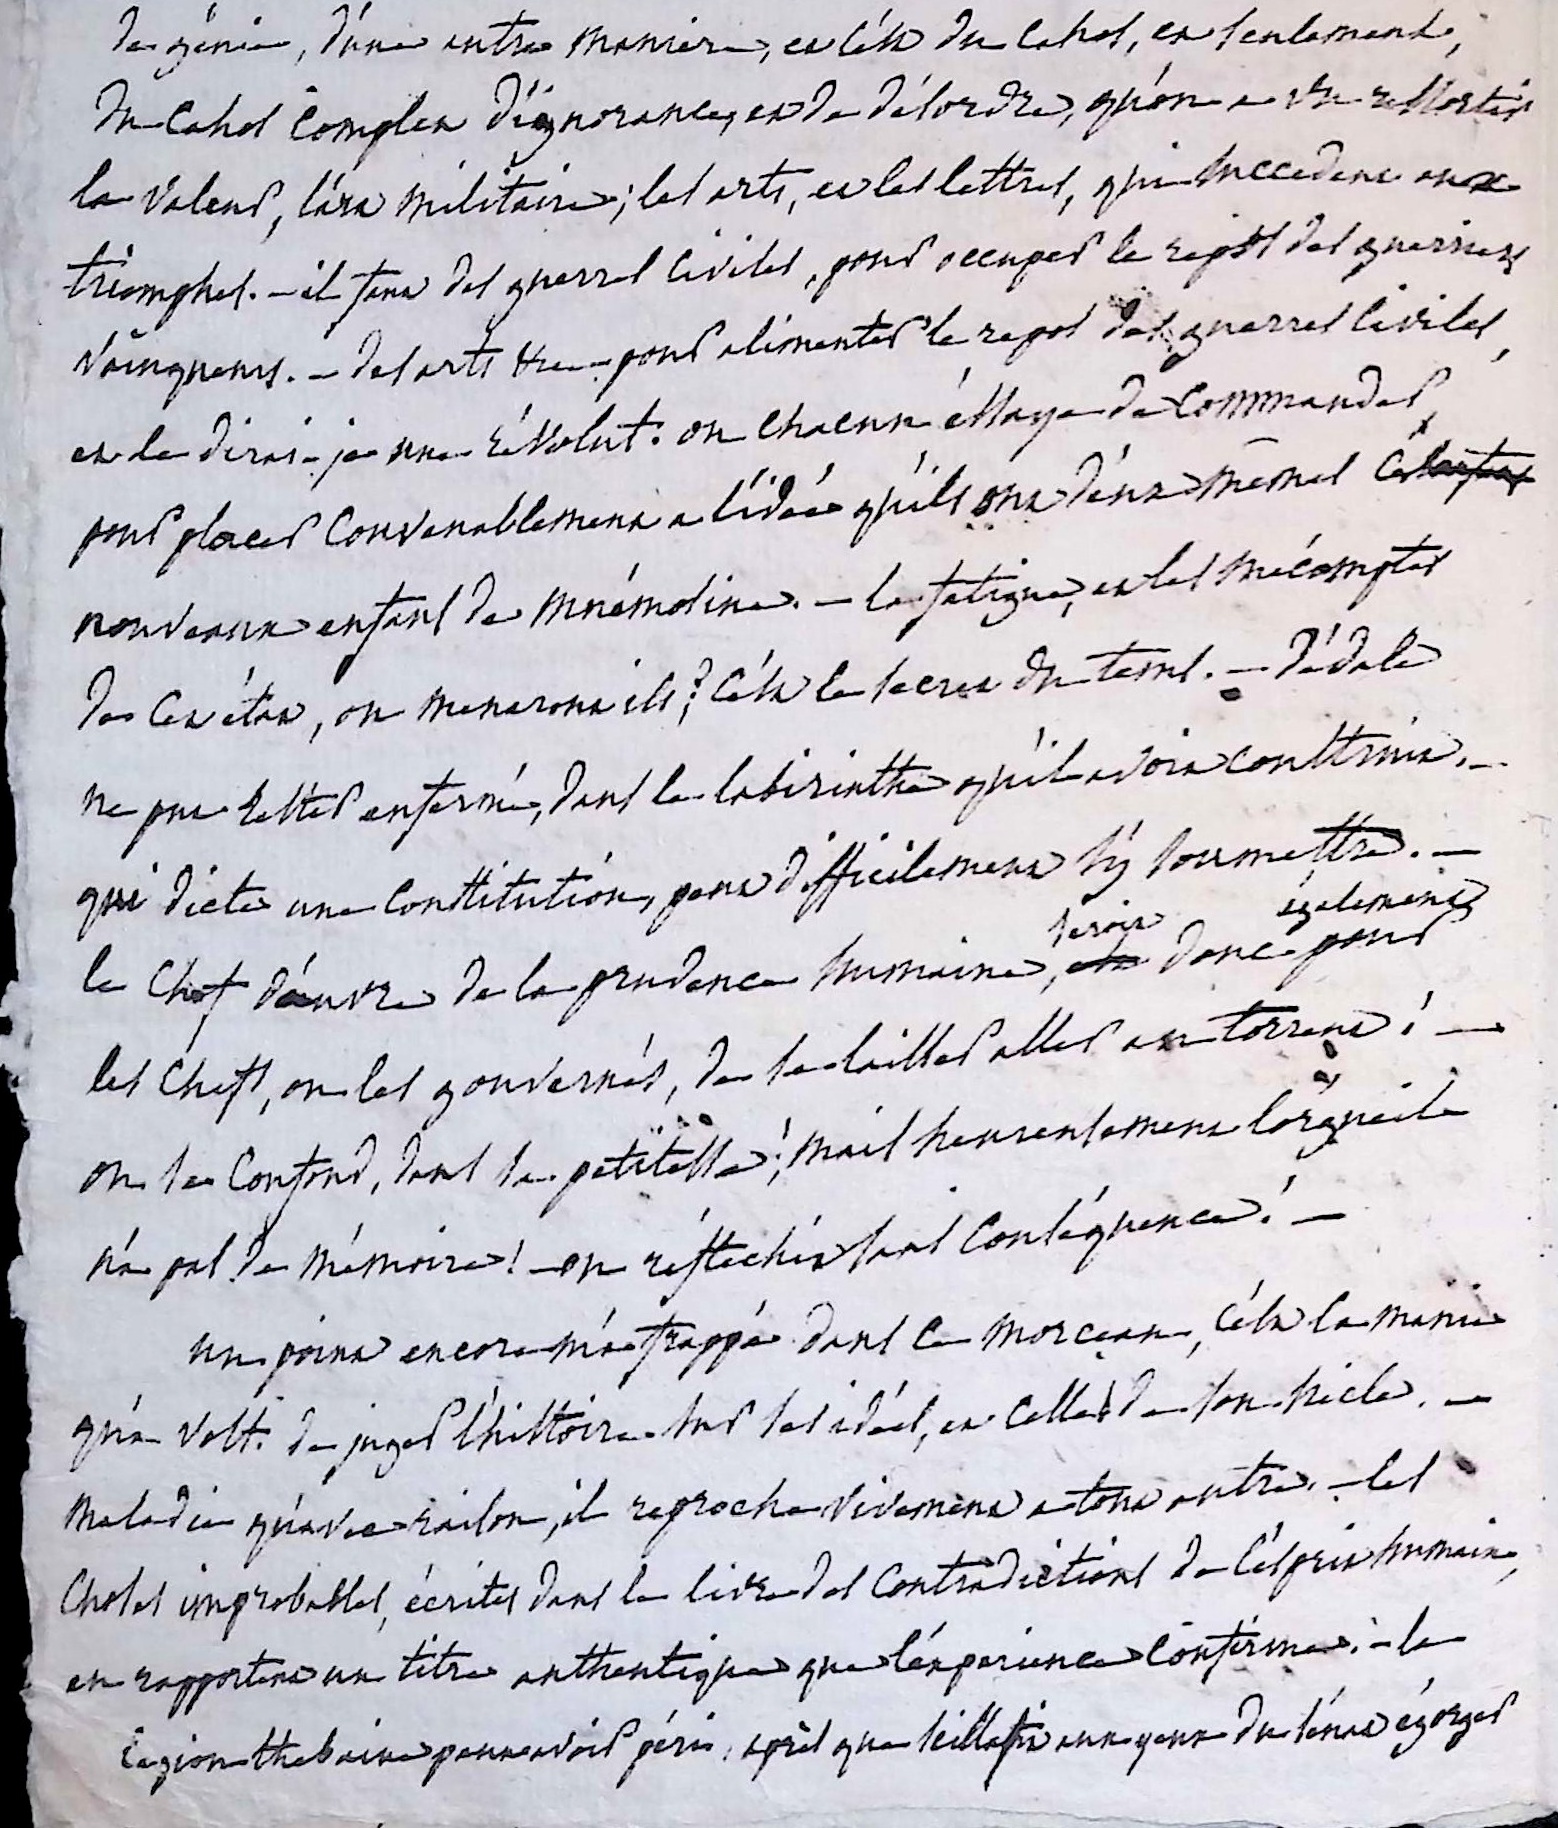 de génie, d'une autre maniere, et c'est du cahos, et seulement,
du cahos complet d'ignorance, et de désordre, qu'on a vu ressortir
la valeur, l'art militaire; les arts, et les lettres, qui succedent aux
triomphes. - il faut des guerres civiles, pour occuper le repos des guerriers
vainqueurs. - des arts &c - pour alimenter le repos des guerres civiles,
et le dirai-je une révolut. ou chacun éssaye de commander,
pour placer convenablement a l'idée qu'ils ont d'eux mêmes ces
nouveaux enfans de mnémosine. - la fatigue, et les mécomptes
de cet état, ou meneront ils? c'est le secret du tems. - dédale
ne put rester enfermé, dans le labirinthe qu'il avoit construit. -
qui dicte une constitution, peut difficilement s'y soumettre. -
le chef d'œuvre de la prudence humaine, seroit donc également pour
les chefs, ou les gouvernés, de se laisser aller au torrent! -
on se confond, dans sa petitesse! mais heureusement l'orgueil
n'a pas de mémoire! - on réfléchit sans conséquence! -
un point encore m'a frappé dans ce morceau, c'est la manie
qu'a Volt. de juger l'histoire sur ses idées, et celles de son siecle. -
maladie qu'avec raison, il reproche vivement a tout autre. - les
choses improbables, écrites dans le livre des contradictions de l'ésprit humain,
en rapportent un titre authentique que l'éxperience confirme. - la
légion thebaine peut avoir péri, après que aux yeux du sénat égorger